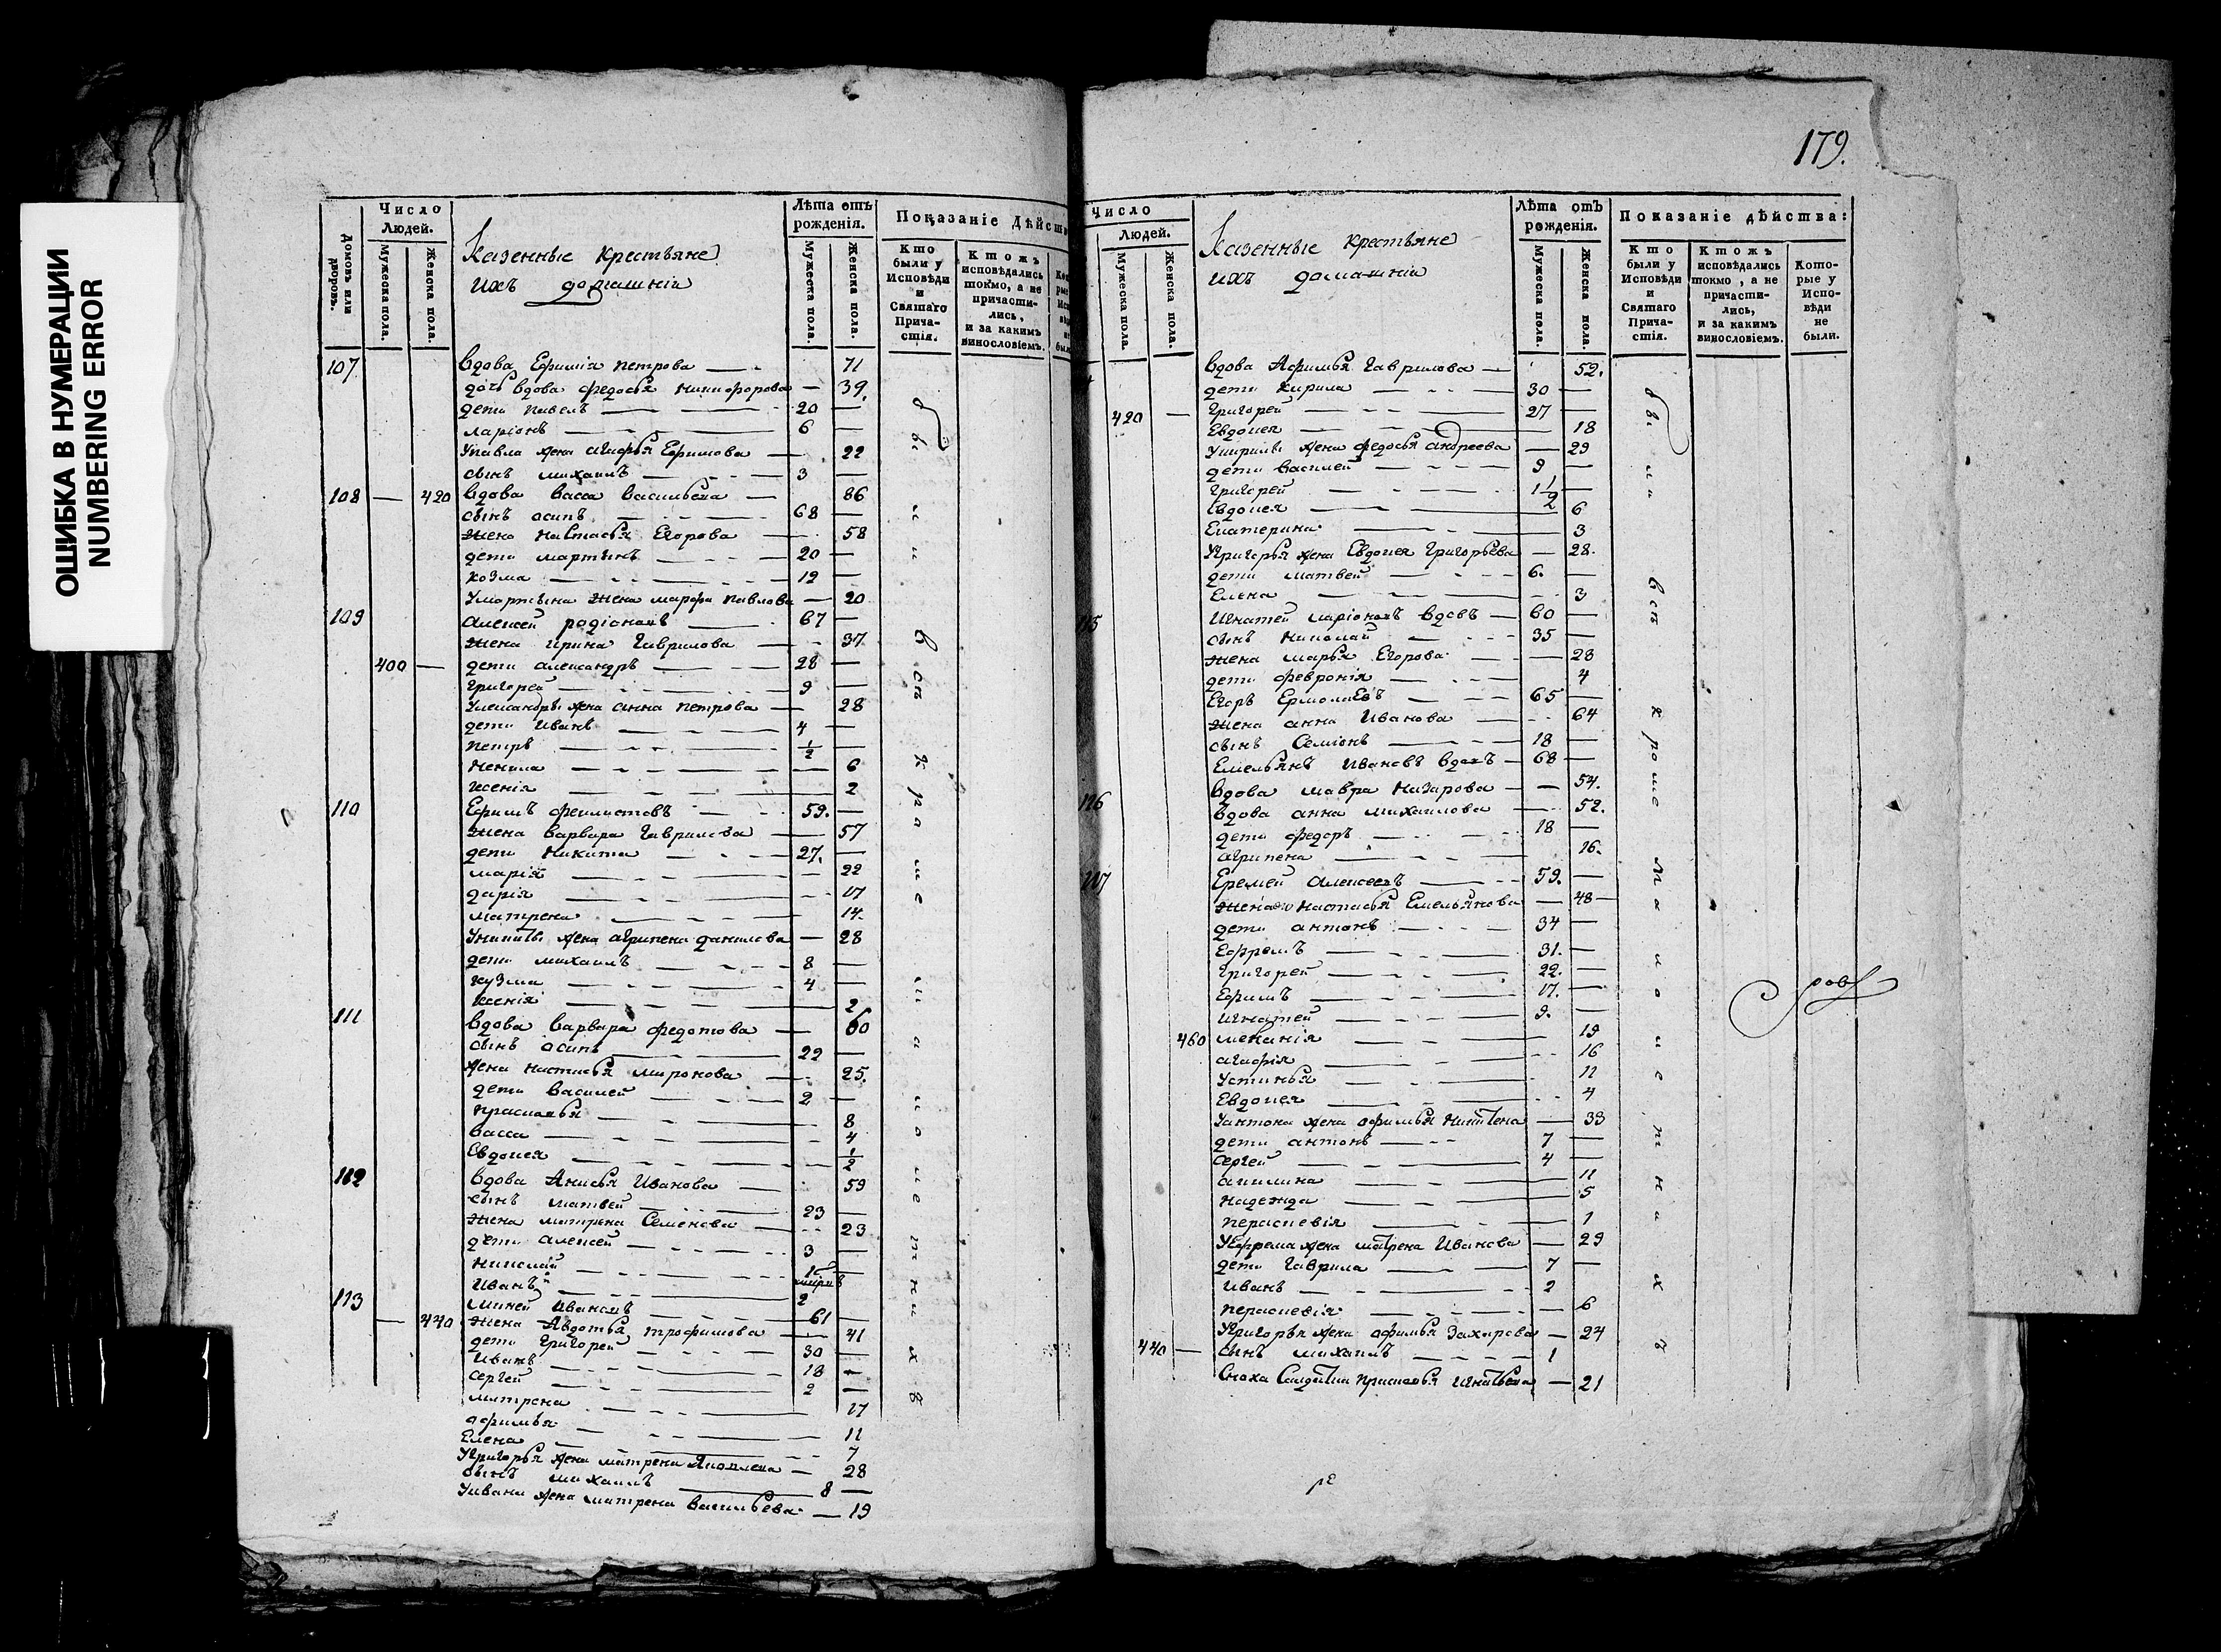 ОШИБКА В НУМЕРАЦИИ
NUMBERING ERROR
Домовъ или дворовъ.
Число Людей.
Мужеска пола.
Женска пола.
Казенные крестьяне
ихъ домашнія
Лѣта отъ рожденія.
Мужеска пола.
Женска пола.
Показаніе Дѣйст
Кто были у Исповѣди и Святаго Причастія.
Ктожъ исповѣдались токмо, а не причастились, и за какимъ винословіемъ.
107 Вдова Ефимія Петрова 71
дочь вдова Федосья Никифорова 39.
дети Павелъ 20
Ларіонъ 6
У Павла жена Агафья Ефимова 22
сынъ Михаилъ 3
108 — 420 Вдова Васса Васильева 86
сынъ Осипъ 68
жена Настасья Егорова 58
дети Мартынъ 20
Козма 12
У Мартына жена Марфа Павлова 20
109 Алексей Родіоновъ 67
жена Ирина Гаврилова 37
400 — дети Александръ 28
Григорей 9
У Александры жена Анна Петрова 28
дети Иванъ 4
Петръ 1/2
Ненила 6
Ксенія 2
110 Ефимъ Феклистовъ 59.
жена Варвара Гаврилова 57
дети Никита 27.
Марія 22
Дарія 17
Матрена 14.
У Никиты жена Агрипена Данилова 28
дети Михаилъ 8
Кузма 4
Ксенія 2
111 Вдова Варвара Федотова 60
сынъ Осипъ 22
жена Настасья Миронова 25.
дети Василей 2
Прасковья 8
Васса 4
Евдокея 1/2
112 Вдова Анисья Иванова 59
сынъ Матвей 23
жена Матрена Семенова 23
дети Алексей 3
Николай
Иванъ 2
113 Миней Ивановъ 61
— 440 жена Авдотья Трофимова 41
дети Григорей 30
Иванъ 18
Сергей 2
Матрена 17
Афимья 11
Елена 7
У Григорья жена Матрена Яковлева 28
сынъ Михаилъ 8
У Ивана жена Матрена Васильева 19
были всѣ кроме малолетныхъ
179.
Число Людей.
Мужеска пола.
Женска пола.
Казенные крестьяне
ихъ домашніи
Лѣта отъ рожденія.
Мужеска пола.
Женска пола.
Показаніе дѣйства:
Кто были у Исповѣди и Святаго Причастія.
Ктожъ исповѣдались токмо, а не причастились, и за какимъ винословіемъ.
Которые у Исповѣди не были.
Вдова Афимья Гаврилова 52.
дети Кирила 30
420 — Григорей 27
Евдокея 18
У Кирилы жена Федосья Андреева 29
дети Василей 9
Григорей 1 1/2
Евдокея 6
Екатерина 3
У Григорья жена Евдокея Григорьева 28.
дети Матвей 6.
Елена 3
115 Игнатей Ларіоновъ вдовъ 60
сынъ Николай 35
жена Марья Егорова 28
дети Февронія 4
Егоръ Ермолаевъ 65
жена Анна Иванова 64
сынъ Семіонъ 18
Емельянъ Ивановъ вдовъ 68
Вдова Мавра Назарова 54.
116 Вдова Анна Михаилова 52.
дети Федоръ 18
Агрипена 16.
117 Еремей Алексеевъ 59.
жена Настасья Емельянова 48
дети Антонъ 34
Ефремъ 31.
Григорей 22.
Ефимъ 17.
Игнатей 9.
460 Меланія 19
Агафія 16
Устинья 11
Евдокея 4
У Антона жена Афимья Никитена 33
дети Антонъ 7
Сергей 4
Акилина 11
Надежда 5
Пераскевія 1
У Ефрема жена Матрена Иванова 29
дети Гаврила 7
Иванъ 2
Пераскевія 6
У Григорья жена Афимья Захарова 24
440 — сынъ Михаилъ 1
Сноха Салдатка Прасковья Игнатьева 21